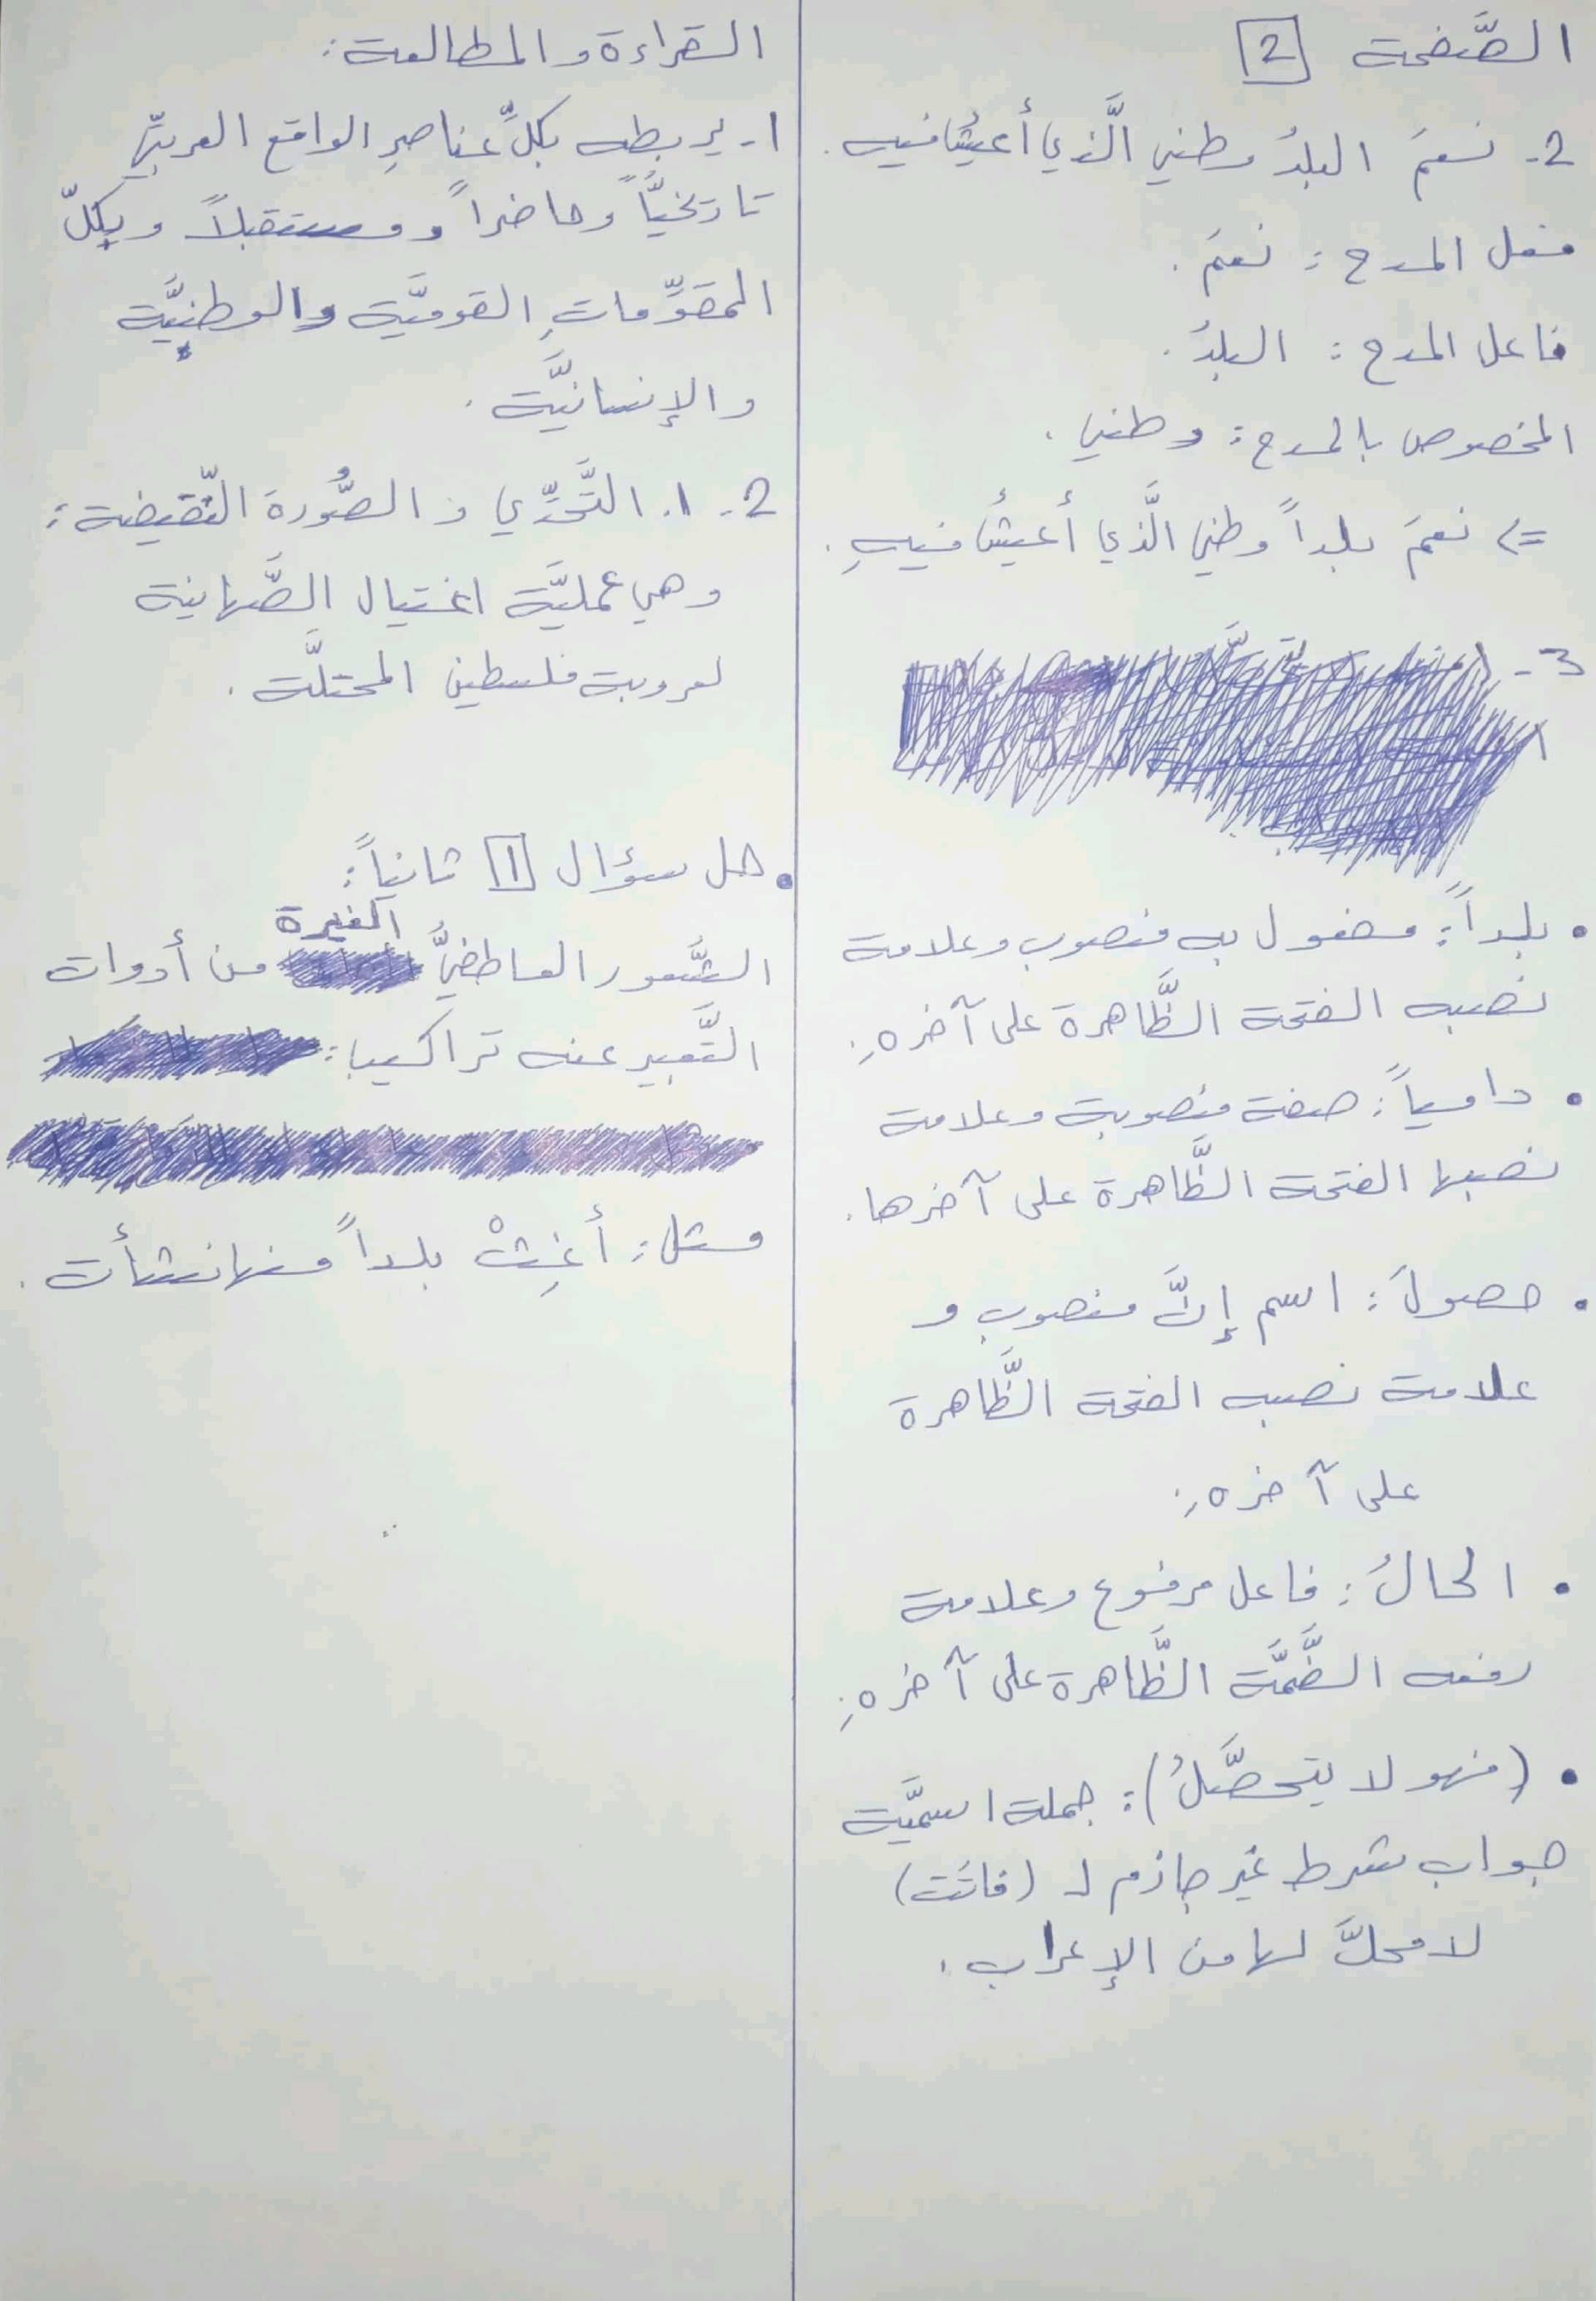 الصَّفحة 2
2- نعمَ البلدُ وطني الَّذي أعيشُ فيه.
فعل المدح : نعمَ.
فاعل المدح : البلدُ.
المخصوص بالمدح : وطني.
=> نعمَ بلداً وطني الَّذي أعيشُ فيهِ.
3-
• بلداً : مفعول به منصوب وعلامة
نصبه الفتحة الظَّاهرة على آخرهِ.
• دامياً : صفة منصوبة وعلامة
نصبها الفتحة الظَّاهرة على آخرها.
• حصولَ : اسم إنَّ منصوب و
علامة نصبه الفتحة الظَّاهرة
على آخرهِ.
• الحالُ : فاعل مرفوع وعلامة
رفعه الضَّمَّة الظَّاهرة على آخرهِ.
• (فهو لا يتحصَّلُ) : جملة اسميَّة
جواب شرط غير جازم لـ (فاتَت)
لا محلَّ لها من الإعراب.
القراءة والمطالعة :
1- يربطه بكلِّ عناصرِ الواقع العربيِّ
تاريخيَّاً وحاضراً ومستقبلاً وبكلّ
المقوِّماتِ القوميَّة والوطنيَّة
والإنسانيَّة.
2- 1. التَّحدِّي والصُّورة النَّقيضة :
وهي عمليَّة اغتيال الصَّهاينة
لعروبة فلسطين المحتلَّة.
• حل سؤال 1 ثانياً :
الشَّعور العاطفيُّ الغيرة من أدوات
التَّعبير عنه تراكيب :
مثل : أغِثْ بلداً منها نشأت.